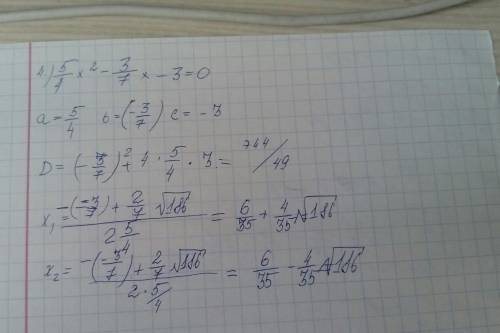 4) 5/4 x² - 3/7 x - 3 = 0
a = 5/4 b = (-3/7) c = -3
D = (-3/7)² + 4 · 5/4 · 3 = 744/49
x₁ = (-(-3/7) + 2/7 √186) / (2 5/4) = 6/35 + 4/35 √186
x₂ = (-(-3/7) + 2/7 √186) / (2 · 5/4) = 6/35 - 4/35 √186